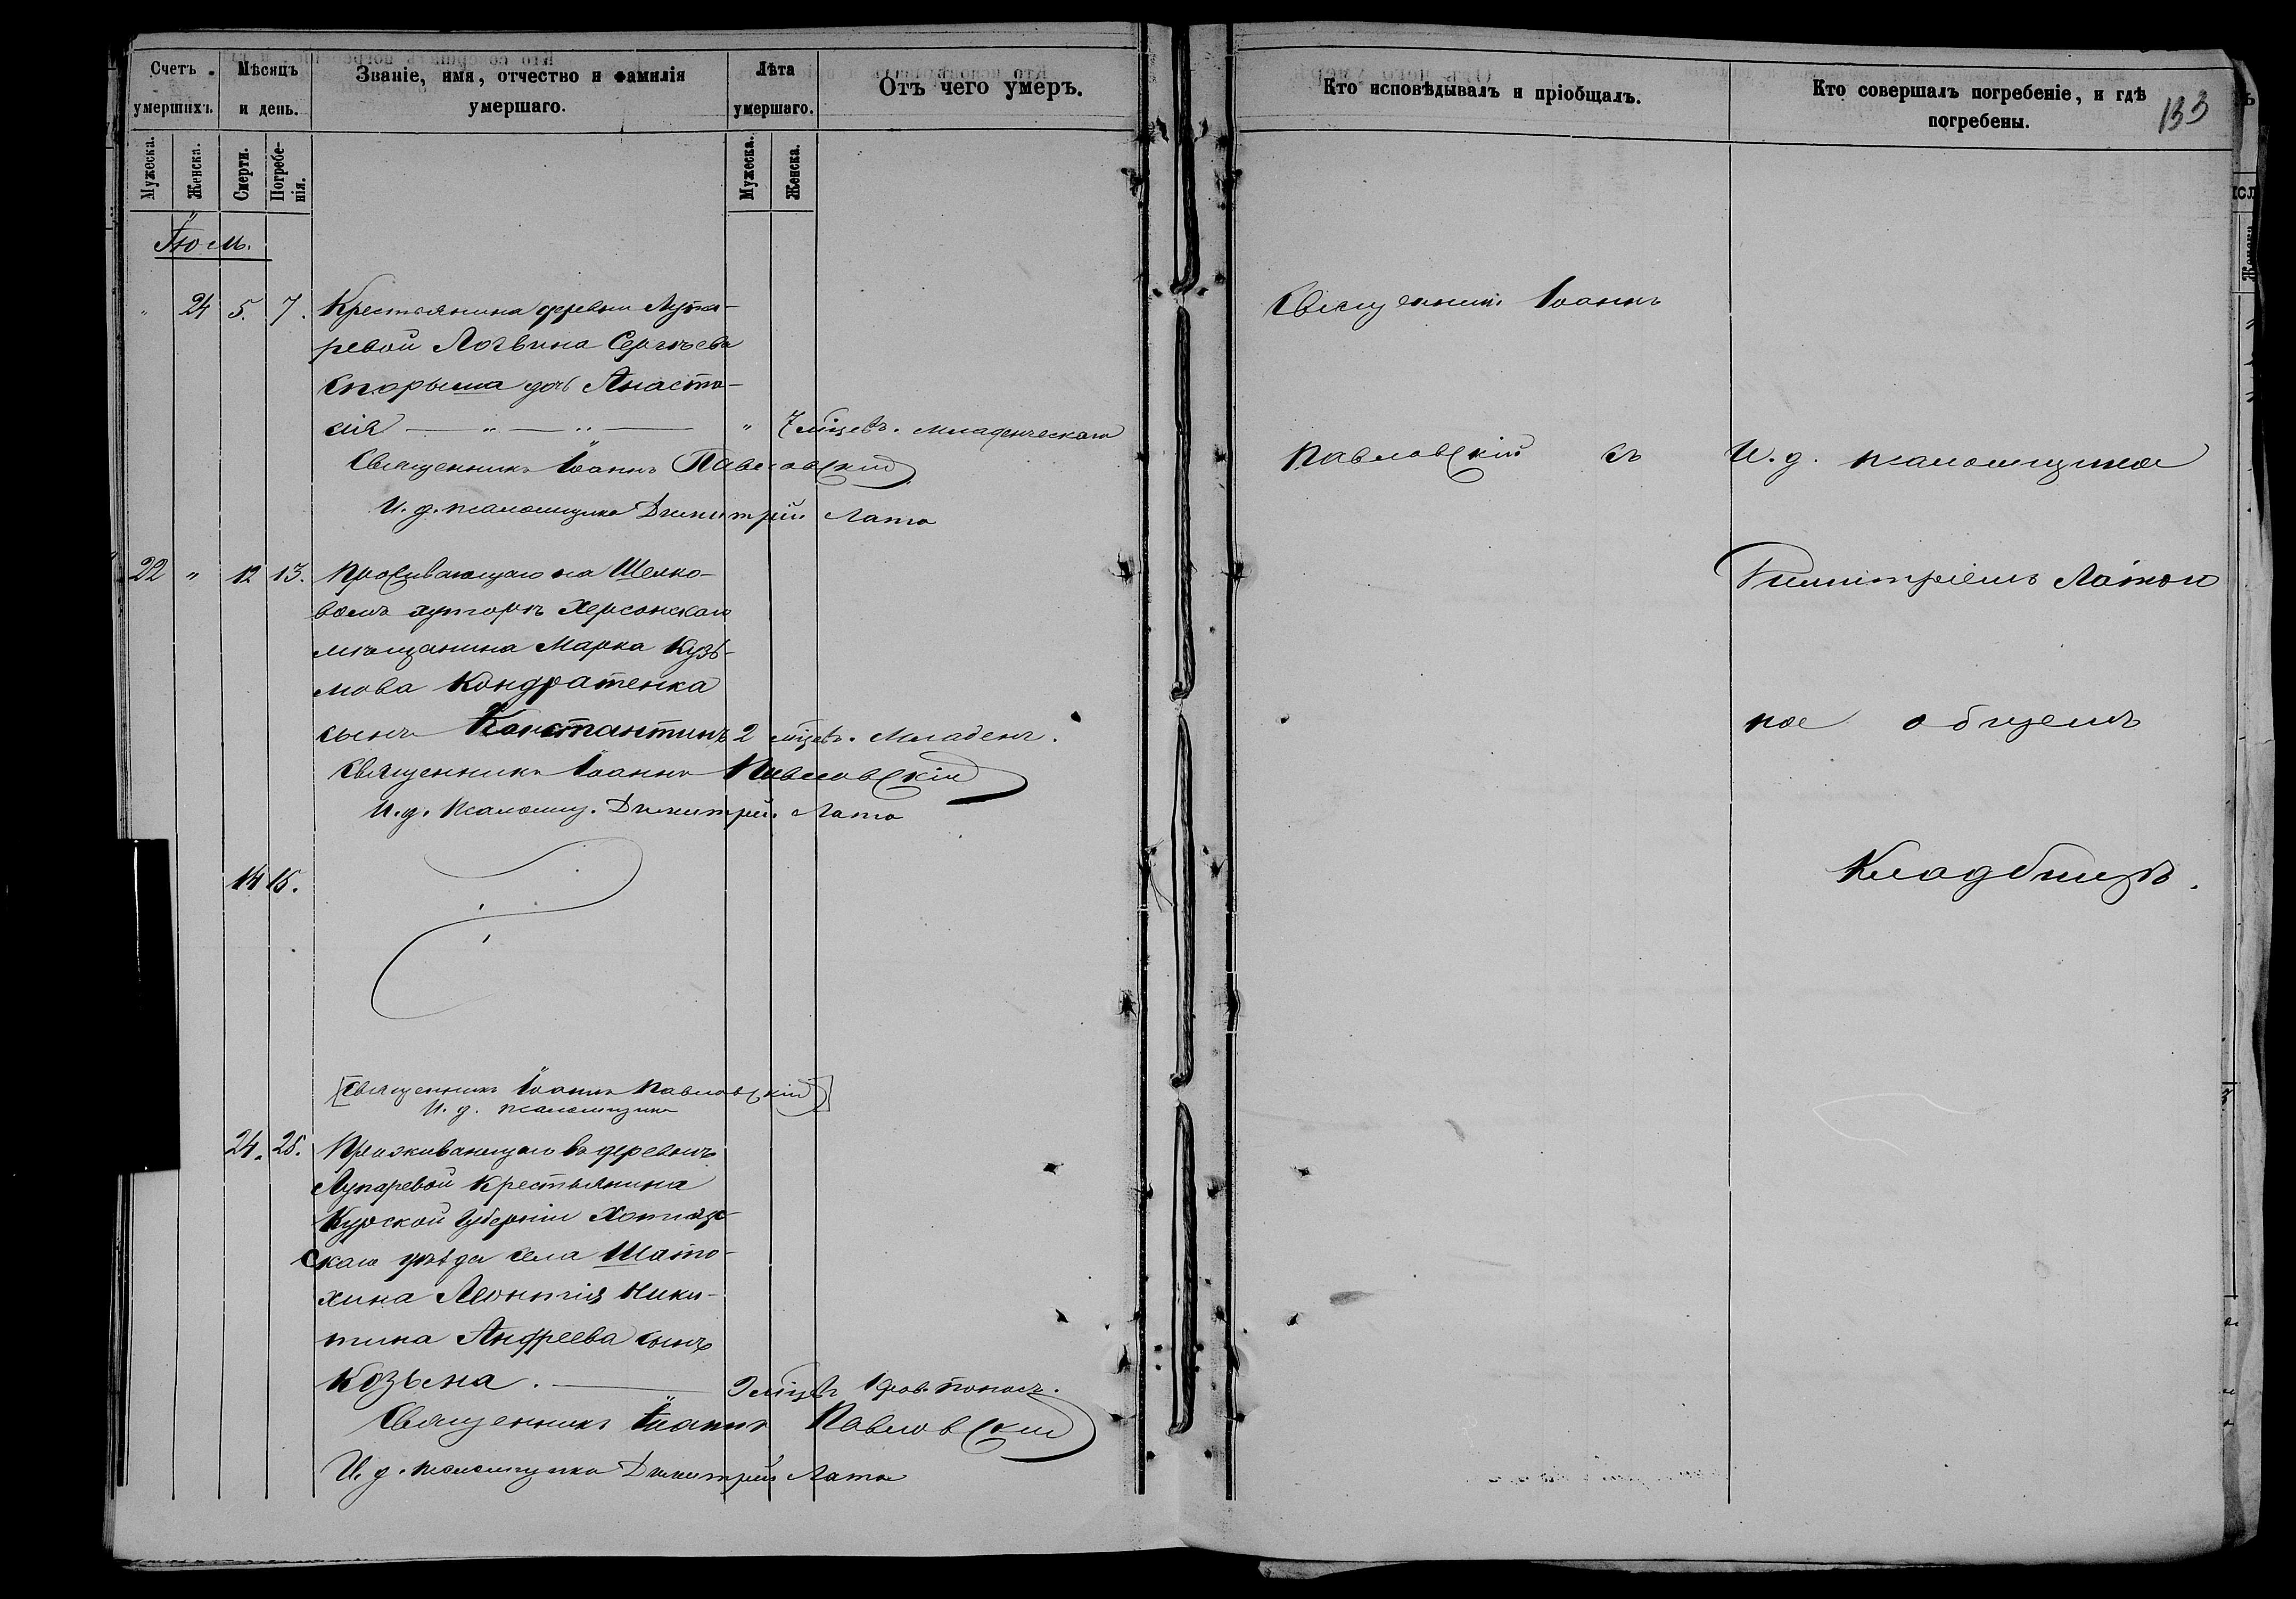 Счетъ умершихъ.
Мѣсяцъ и день.
Званіе, имя, отчество и фамилія умершаго.
Лѣта умершаго.
Отъ чего умеръ.
Кто исповѣдывалъ и пріобщалъ.
Кто совершалъ погребеніе, и гдѣ погребены.
133
Мужеска.
Женска.
Смерти.
Погребе-
нія.
Мужеска.
Женска.
" 24 5. 7. Крестьянина деревни Лупа-
ревой Логвина Сергѣева
Скорыша дочь Анаста-
сія — " — " — " 7 мѣцевъ. Младенческаго
Священникъ Іоаннъ Павловскій
И. д. псаломщика Димитрій Лата
22 " 12 13. Проживающаго на Шелко-
вомъ хуторѣ Херсонскаго
мѣщанина Марка Кузь-
мова Кондратенка
сынъ Константинъ 2 мѣцевъ. Младенч.
Священникъ Іоаннъ Павловскій
И. д. Псаломщ. Димитрій Лата
14 15.
[Священникъ Іоаннъ Павловскій]
И. д. псаломщика
24. 25. Проживающаго въ деревнѣ
Лупаревой крестьянина
Курской Губерніи
скаго уѣзда села Шато-
хина Леонтія Ники-
тина Андреева сынъ
Козьма. — 9 мѣцевъ Кров. поносъ.
Священникъ Іоаннъ Павловскій
И. д. псаломщика Димитрій Лата
Священникъ Іоаннъ
Павловскій съ И. д. псаломщика
Димитріемъ Латою
на общемъ
Кладбищѣ.